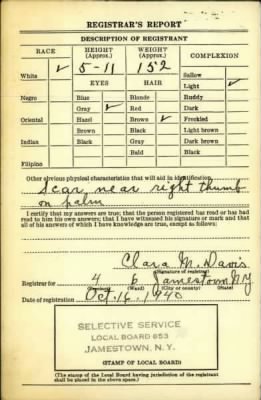 REGISTRAR'S REPORT
DESCRIPTION OF REGISTRANT
RACE HEIGHT (Approx.) WEIGHT (Approx.) COMPLEXION
White ✓ 5-11 152 Sallow
EYES HAIR Light ✓
Negro Blue Blonde Ruddy
Gray ✓ Red Dark
Oriental Hazel Brown ✓ Freckled
Brown Black Light brown
Indian Black Gray Dark brown
Bald Black
Filipino
Other obvious physical characteristics that will aid in identification
Scar near right thumb
on palm
I certify that my answers are true; that the person registered has read or has had
read to him his own answers; that I have witnessed his signature or mark and that
all of his answers of which I have knowledge are true, except as follows:
Clara M. Davis
(Signature of registrar)
Registrar for 4 6 Jamestown N.Y.
(Precinct) (Ward) (City or county) (State)
Date of registration Oct. 16, 1940
SELECTIVE SERVICE
LOCAL BOARD 853
JAMESTOWN, N. Y.
(STAMP OF LOCAL BOARD)
(The stamp of the Local Board having jurisdiction of the registrant
shall be placed in the above space.)